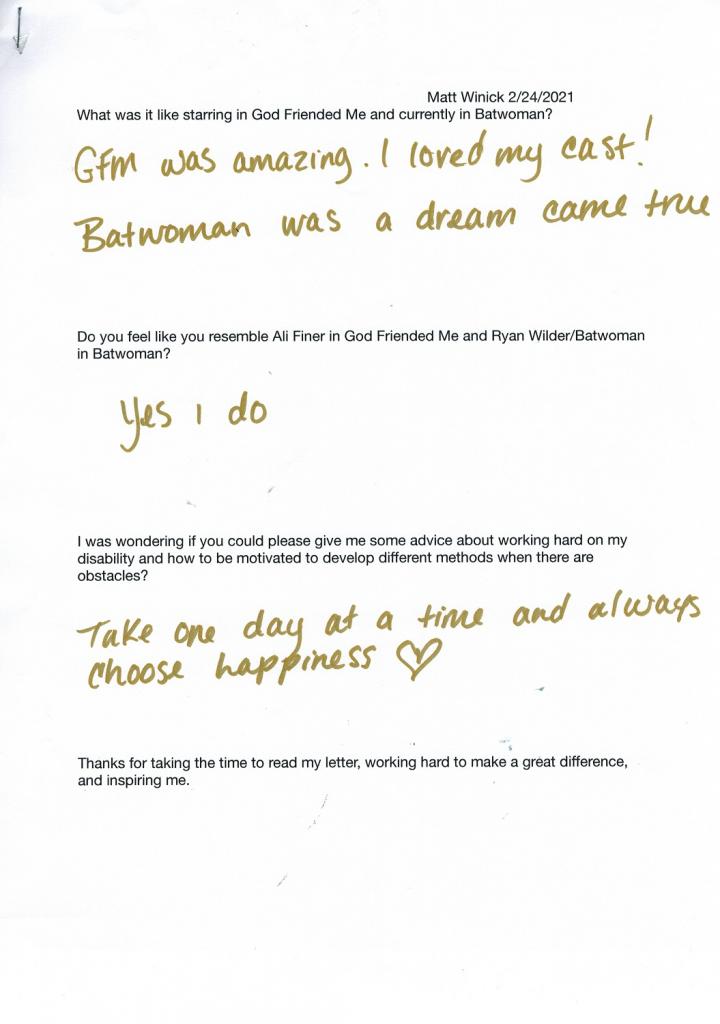 Matt Winick 2/24/2021
What was it like starring in God Friended Me and currently in Batwoman?
Gfm was amazing. I loved my cast!
Batwoman was a dream came true
Do you feel like you resemble Ali Finer in God Friended Me and Ryan Wilder/Batwoman
in Batwoman?
Yes i do
I was wondering if you could please give me some advice about working hard on my
disability and how to be motivated to develop different methods when there are
obstacles?
Take one day at a time and always
choose happiness ♡
Thanks for taking the time to read my letter, working hard to make a great difference,
and inspiring me.